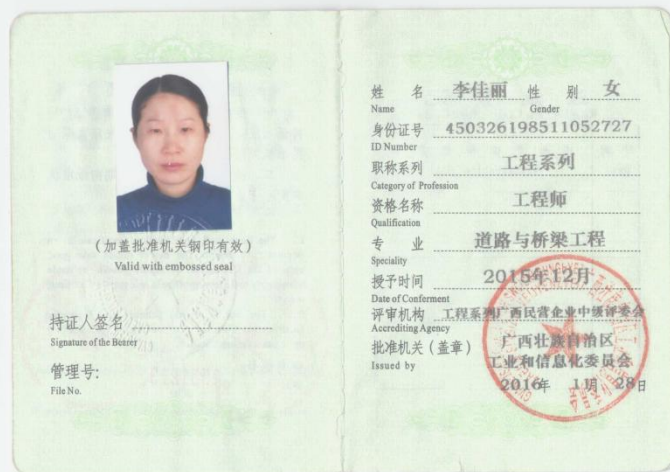 (加盖批准机关钢印有效)
Valid with embossed seal
持证人签名
Signature of the Bearer
管理号:
File No.
姓 名 李佳丽 性 别 女
Name Gender
身份证号 450326198511052727
ID Number
职称系列 工程系列
Category of Profession
资格名称 工程师
Qualification
专 业 道路与桥梁工程
Speciality
授予时间 2015年12月
Date of Conferment
评审机构 工程系列广西民营企业中级评委会
Accrediting Agency
批准机关(盖章) 广西壮族自治区
Issued by 工业和信息化委员会
2016年 11月 28日